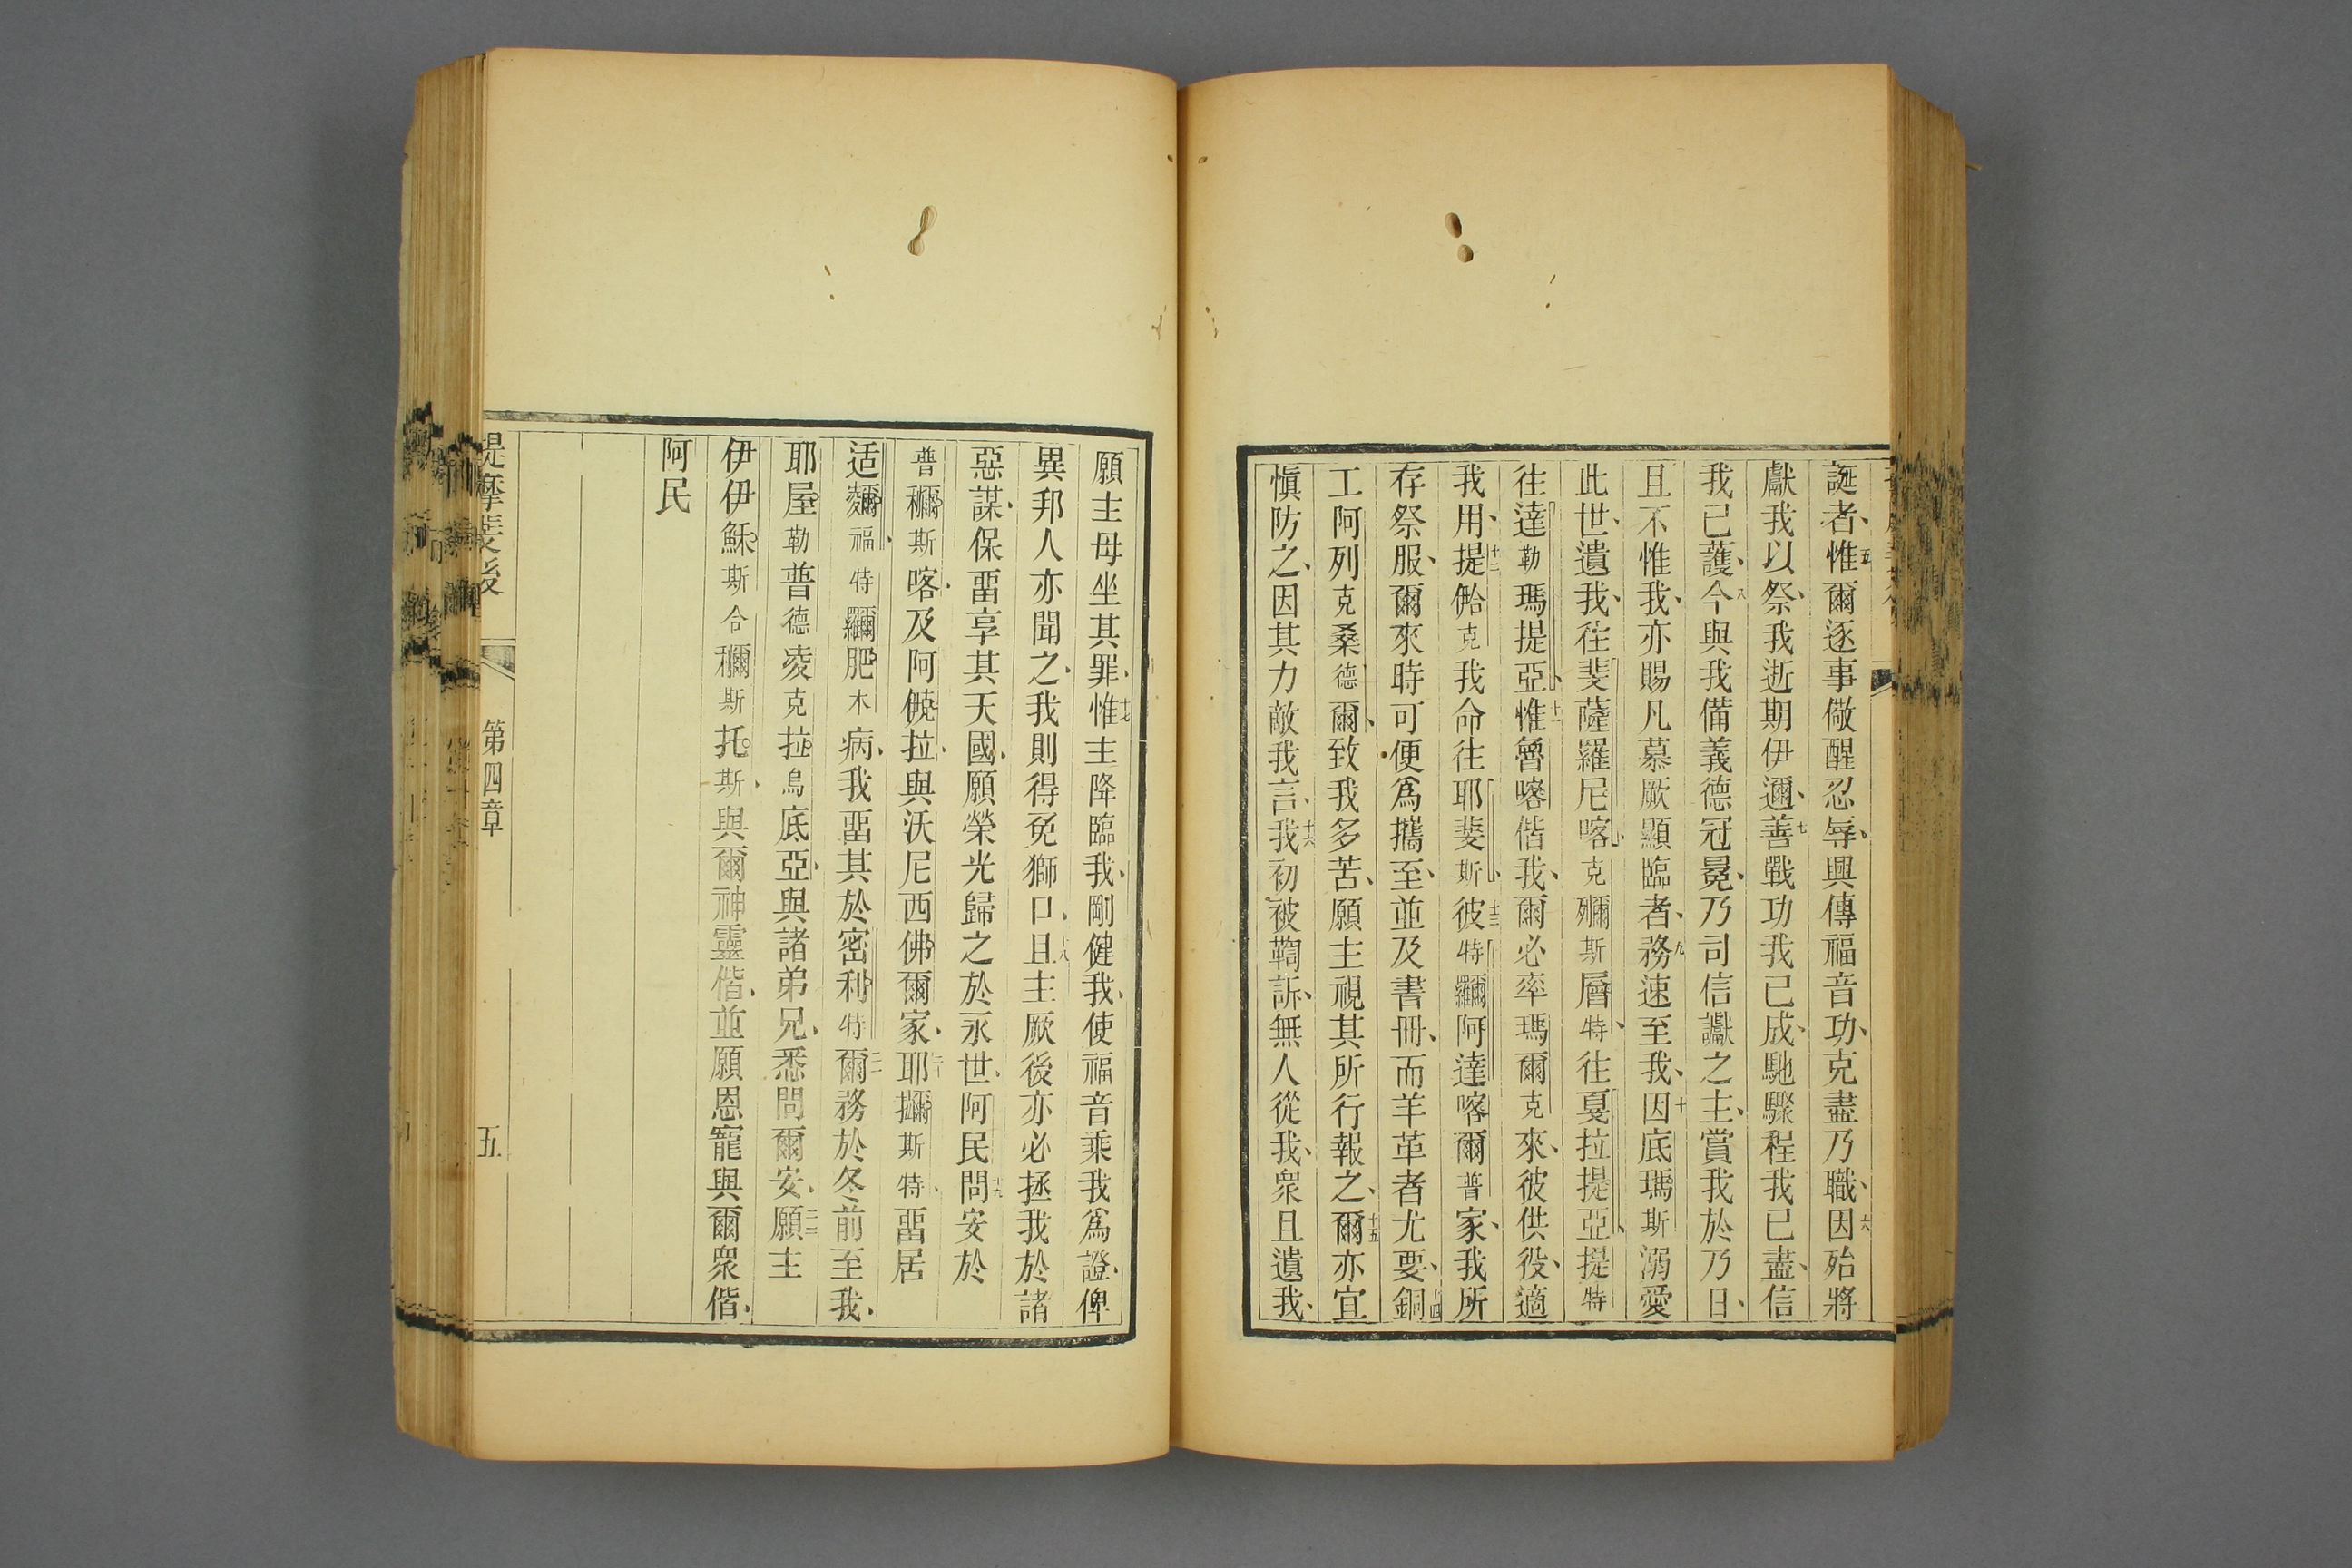 誕者、五惟爾逐事儆醒忍辱、興傳福音功、克盡乃職、六因殆將
獻我以祭、我逝期伊邇、七善戰功我已成、馳驟程我已盡、信
我已護、八今與我備義德冠冕、乃司信讞之主、賞我於乃日、
且不惟我、亦賜凡慕厥顯臨者、九務速至我、十因底瑪斯溺愛
此世、遺我、往斐薩羅尼喀、克斯層特、往戛拉提亞、提特
往達勒瑪提亞、十一惟魯喀偕我、爾必率瑪爾克來、彼供役、適
我用、十二提我命往耶斐斯、十三彼特阿達喀爾普家、我所
存祭服、爾來時可便爲攜至、並及書冊、而羊革者尤要、十四銅
工阿列克桑德爾、致我多苦、願主視其所行報之、十五爾亦宜
愼防之、因其力敵我言、十六我初被鞫訴、無人從我、衆且遺我、
願主毋坐其罪、十七惟主降臨我、剛健我、使福音乘我爲證、俾
異邦人亦聞之、我則得免獅口、十八且主厥後亦必拯我於諸
惡謀、保畱享其天國、願榮光歸之於永世、阿民、十九問安於
普斯喀、及阿拉、與沃尼西佛爾家、二十耶斯特、畱居
适福、特肥木病、我畱其於密利特、二一爾務於冬前至我、
耶屋勒普德凌克拉烏底亞、與諸弟兄、悉問爾安、二二願主
伊伊穌斯合斯托斯、與爾神靈偕、並願恩寵與爾衆偕、
阿民
提摩斐後
第四章
五